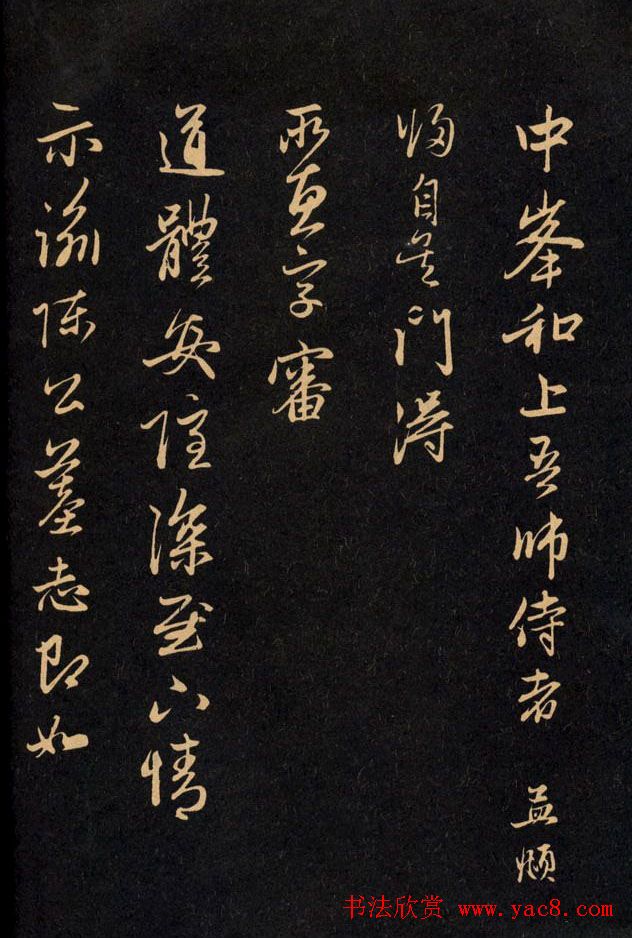 中峯和上吾師侍者 孟頫
歸自吳門得
所惠字審
道體安隱深慰下情
示諭陳公墓志即如
书法欣赏 www.yac8.com